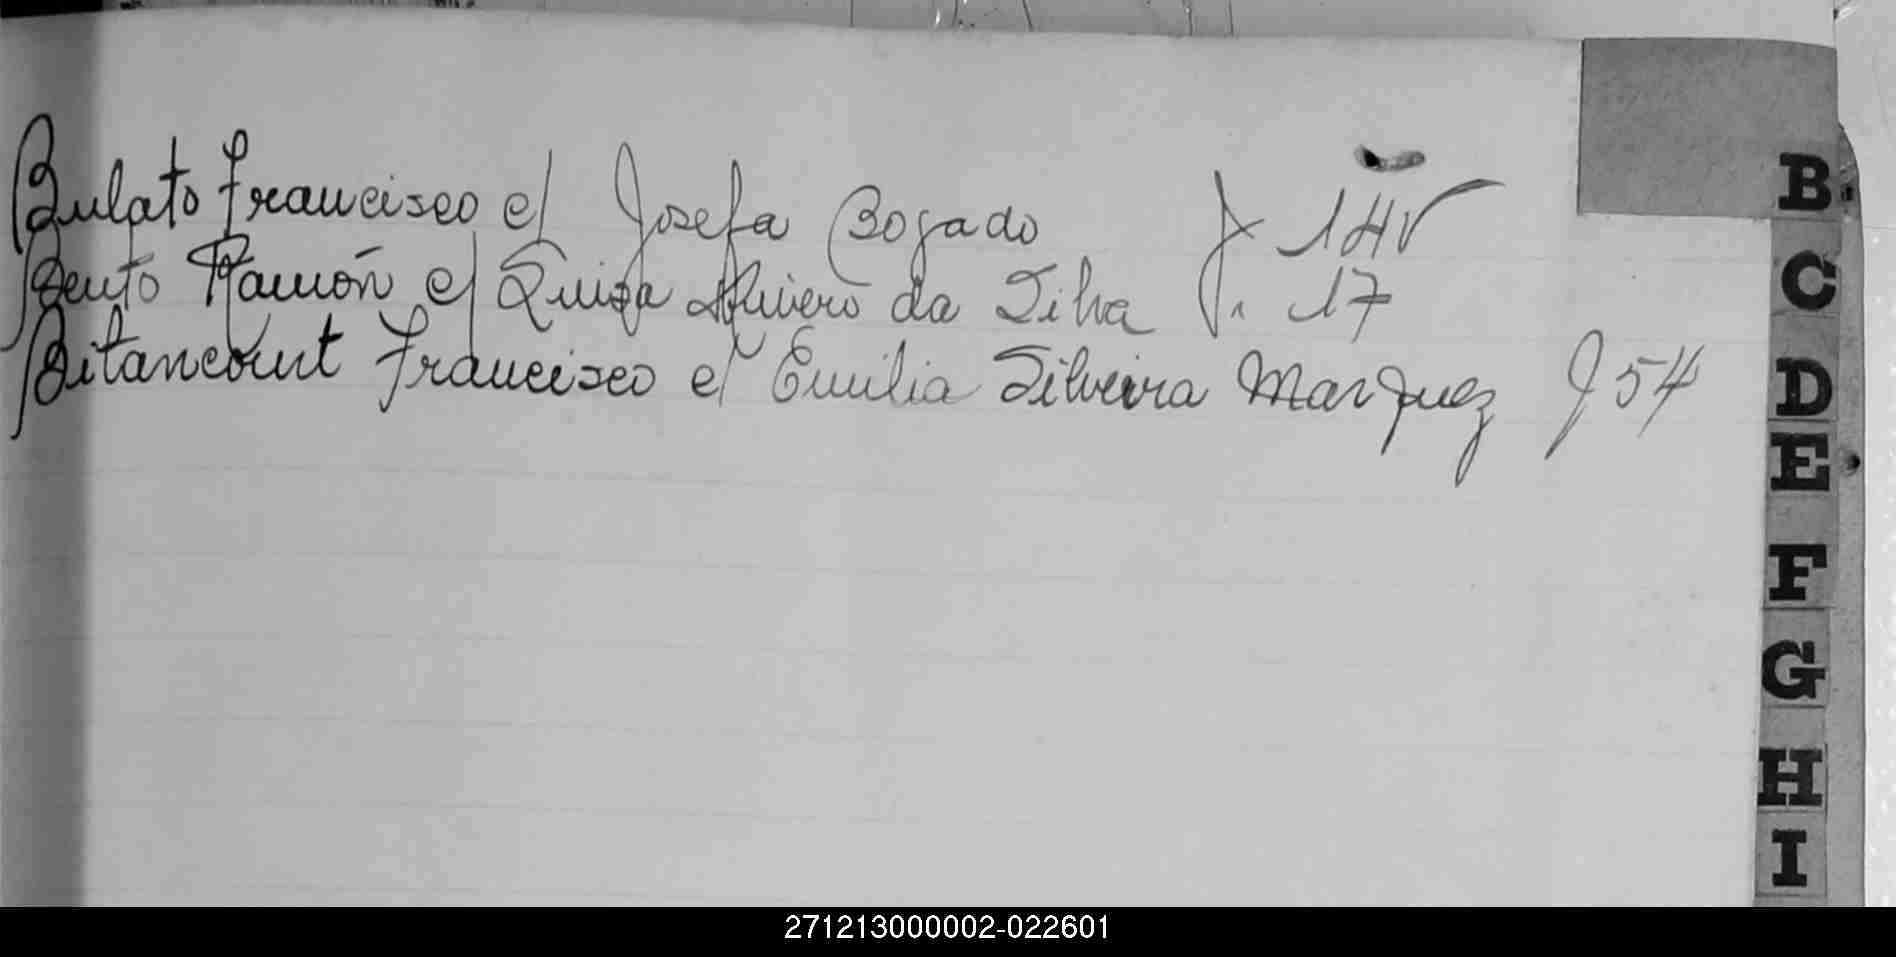 Bulato Francisco c/ Josefa Bogado f 14v
Bento Ramón c/ Luiza Rivero da Silva f. 17
Bitancourt Francisco c/ Emilia Silveira Marquez f 54
B
C
D
E
F
G
H
I
271213000002-022601